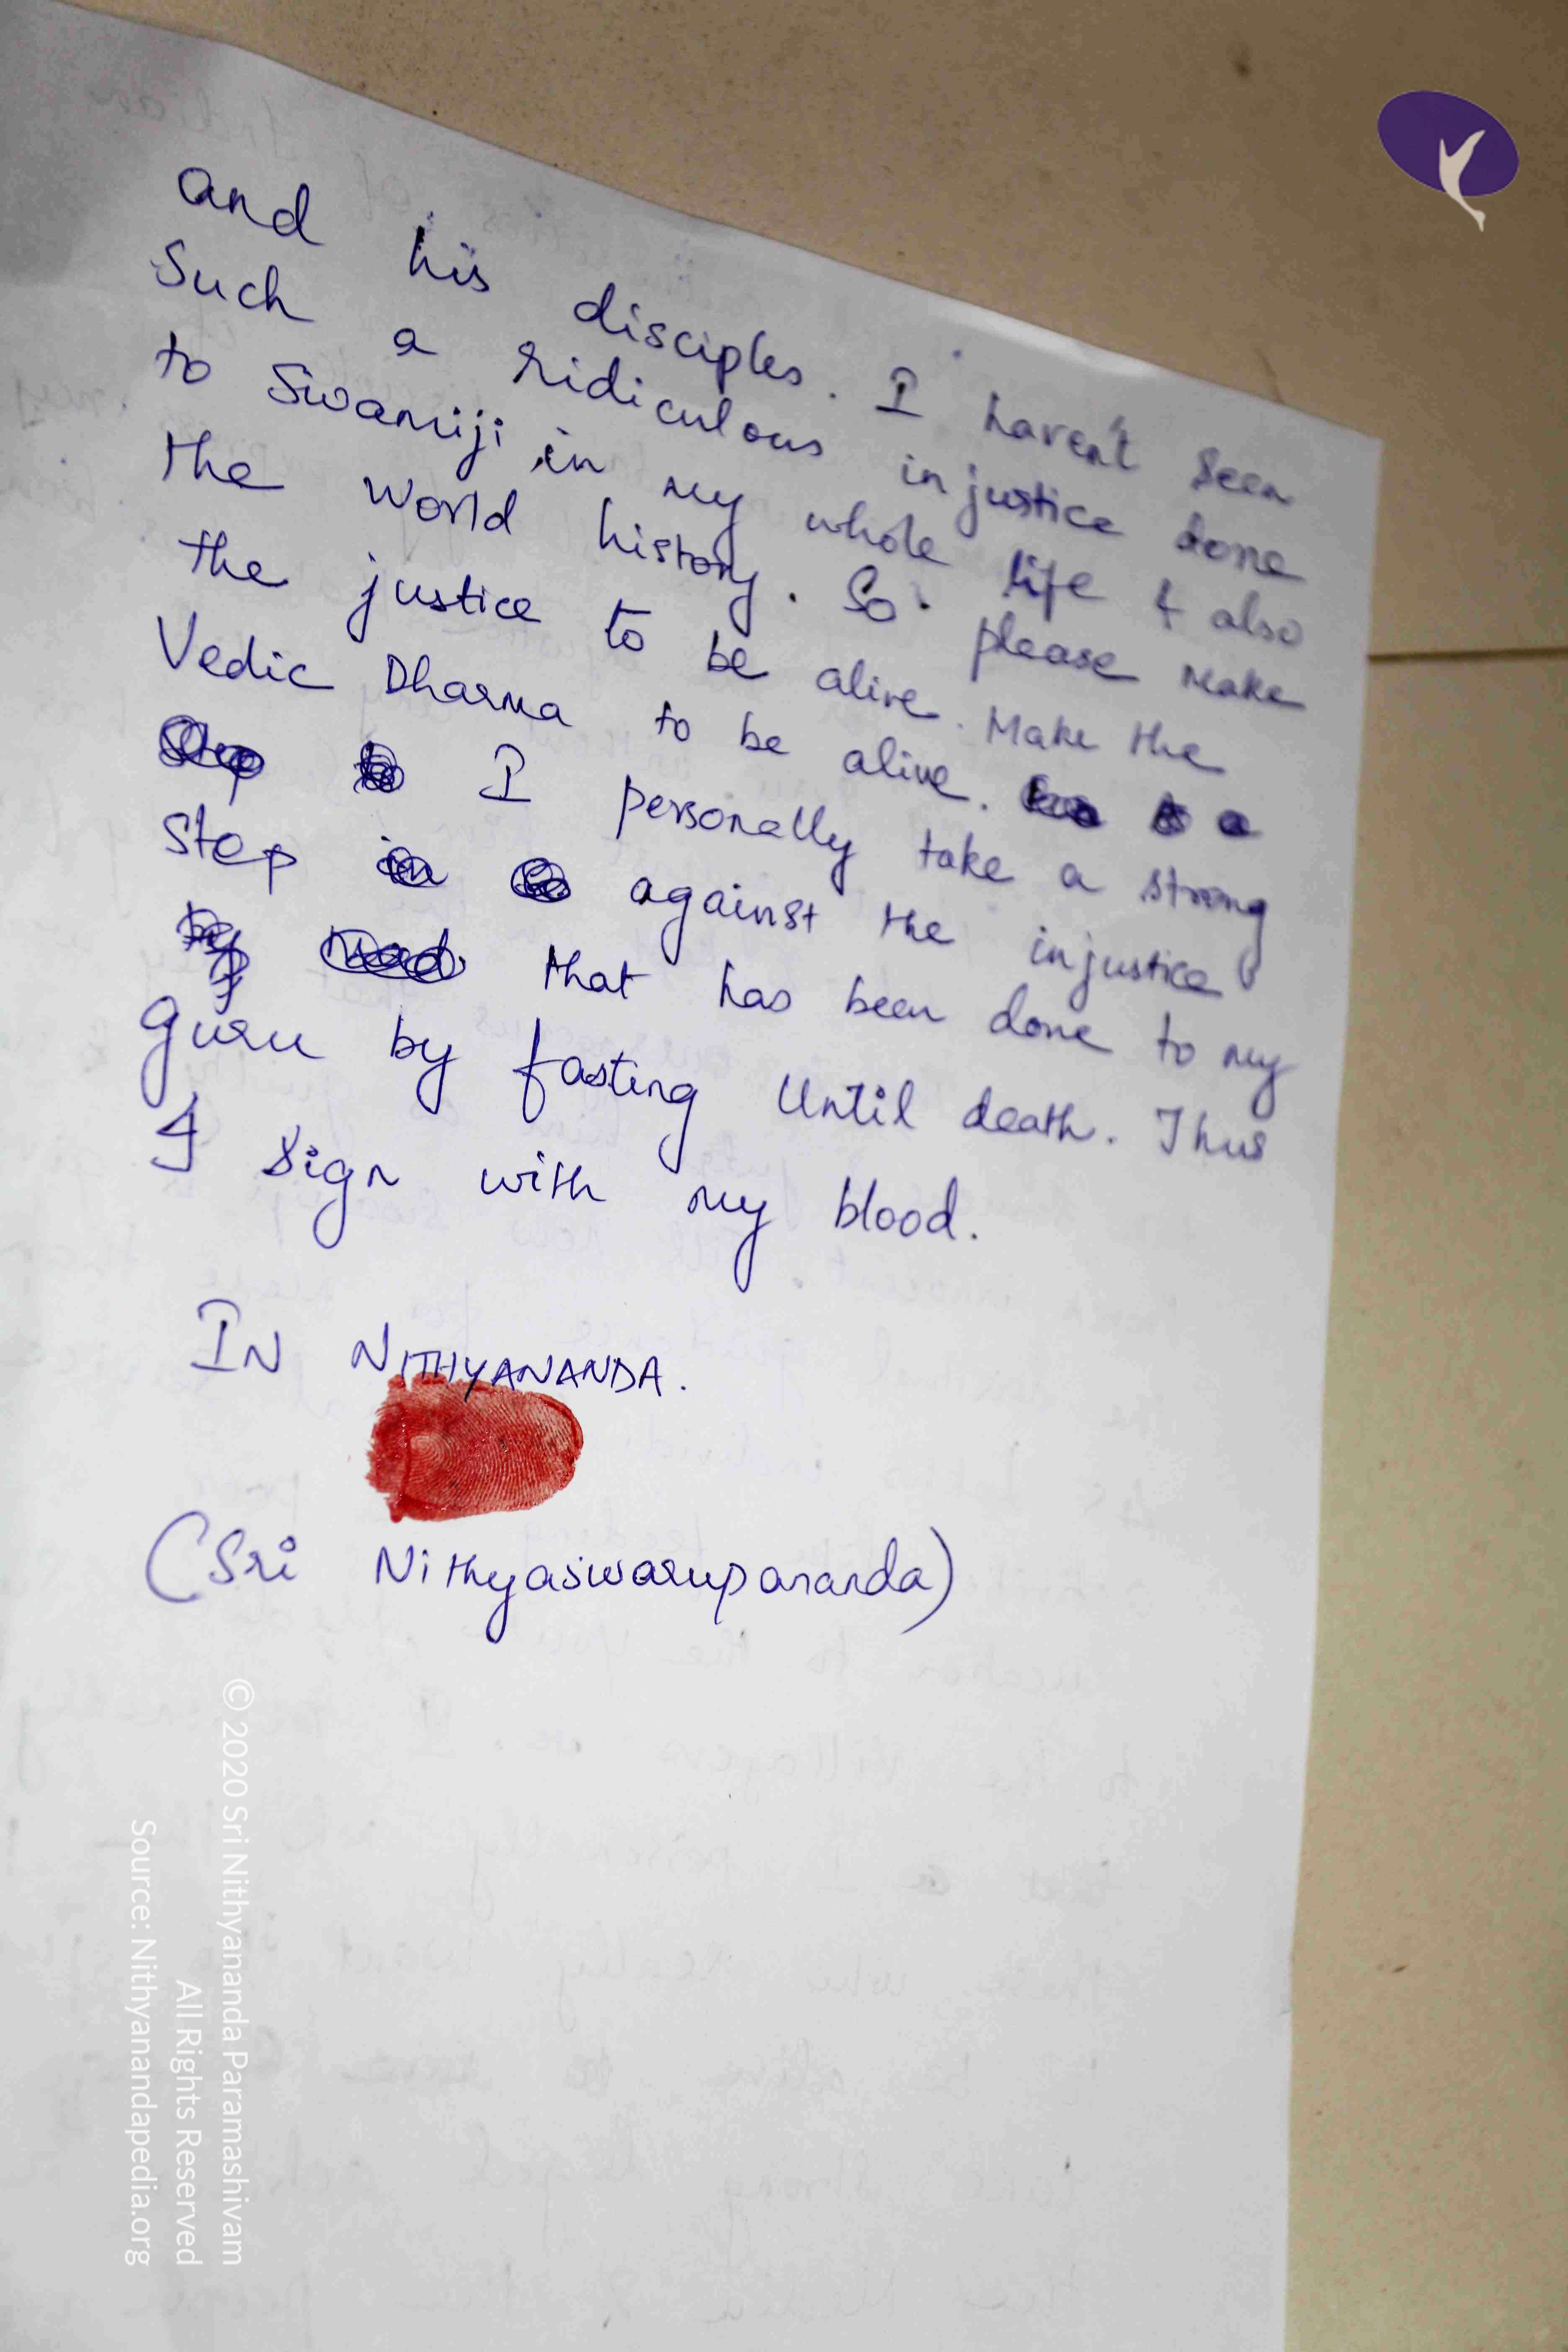 and his disciples. I haven't seen
Such a ridiculous injustice done
to Swamiji in my whole life & also
the world history. So please make
the justice to be alive. Make the
Vedic Dharma to be alive.
I personally take a strong
step against the injustice
that has been done to my
guru by fasting until death. Thus
I sign with my blood.
IN NITHYANANDA.
(Sri Nithyaswarupananda)
© 2020 Sri Nithyananda Paramashivam
All Rights Reserved
Source: Nithyanandapedia.org